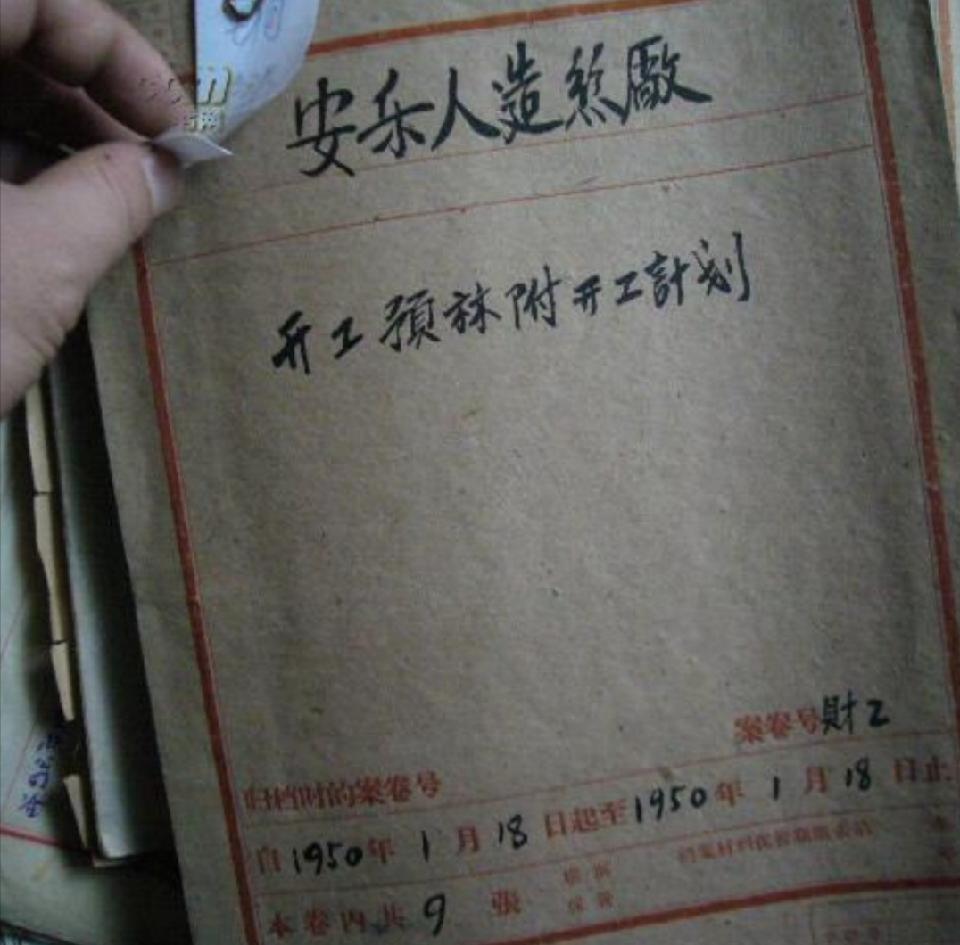 安乐人造煞廠
开工預祘附开工計划
案卷号財2
归档时的案卷号
自1950年1月18日起至1950年1月18日止
本卷内共9張